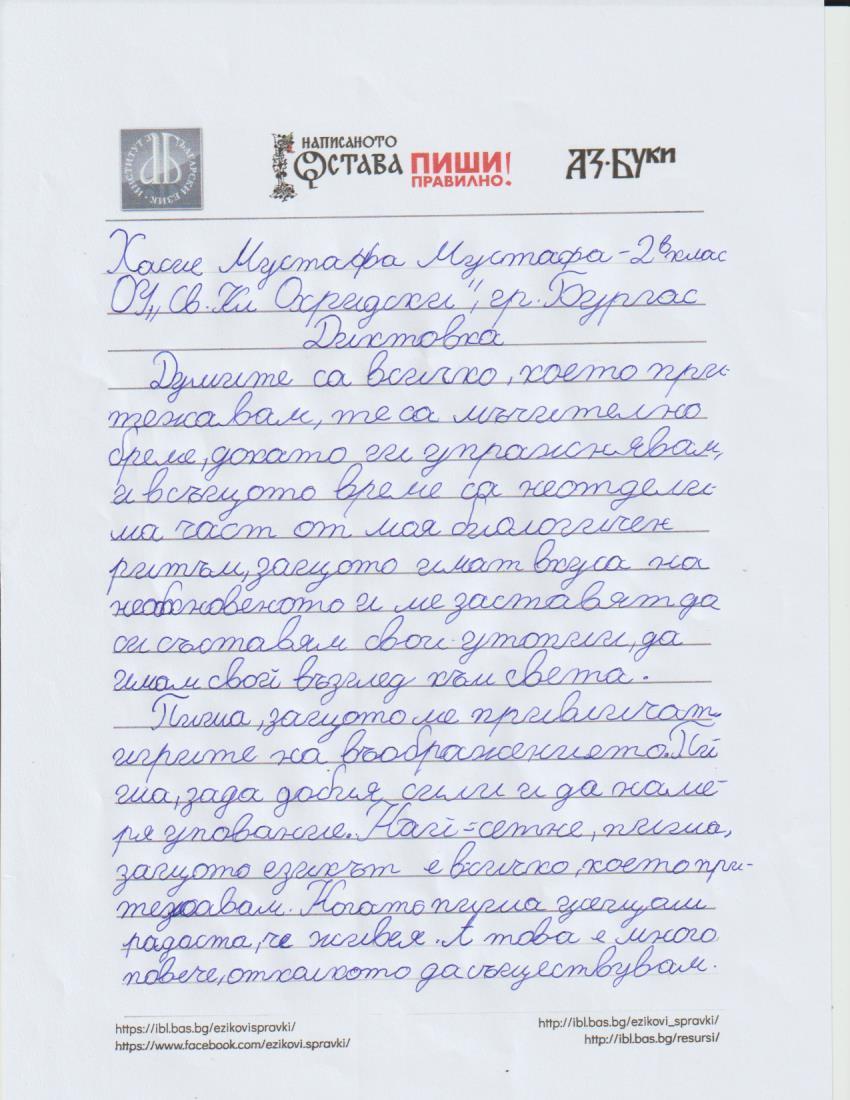 ИНСТИТУТ ЗА БЪЛГАРСКИ ЕЗИК
НАПИСАНОТО
ОСТАВА
ПИШИ
ПРАВИЛНО!
АЗ·БУКИ
Хасие Мустафа Мустафа - 2 в клас
ОУ „Св. Кл Охридски", гр. Бургас
Диктовка
Думите са всичко, което при-
тежавам, те са мъчително
бреме, докато ги упражнявам,
и в същото време са неотдели-
ма част от моя биологичен
ритъм, защото имат вкуса на
необикновеното и ме заставят да
си съставям свои утопии, да
имам свой възглед към света.
Пиша, защото ме привличат
игрите на въображението. Пи
ша, зада добия сили и да наме-
ря упование. Най-сетне, пиша,
защото езикът е всичко, което при-
тежавам. Когато пиша усещам
радоста, че живея. А това е много
повече, отколкото да съществувам.
https://ibl.bas.bg/ezikovispravki/
https://www.facebook.com/ezikovi.spravki/
http://ibl.bas.bg/ezikovi_spravki/
http://ibl.bas.bg/resursi/